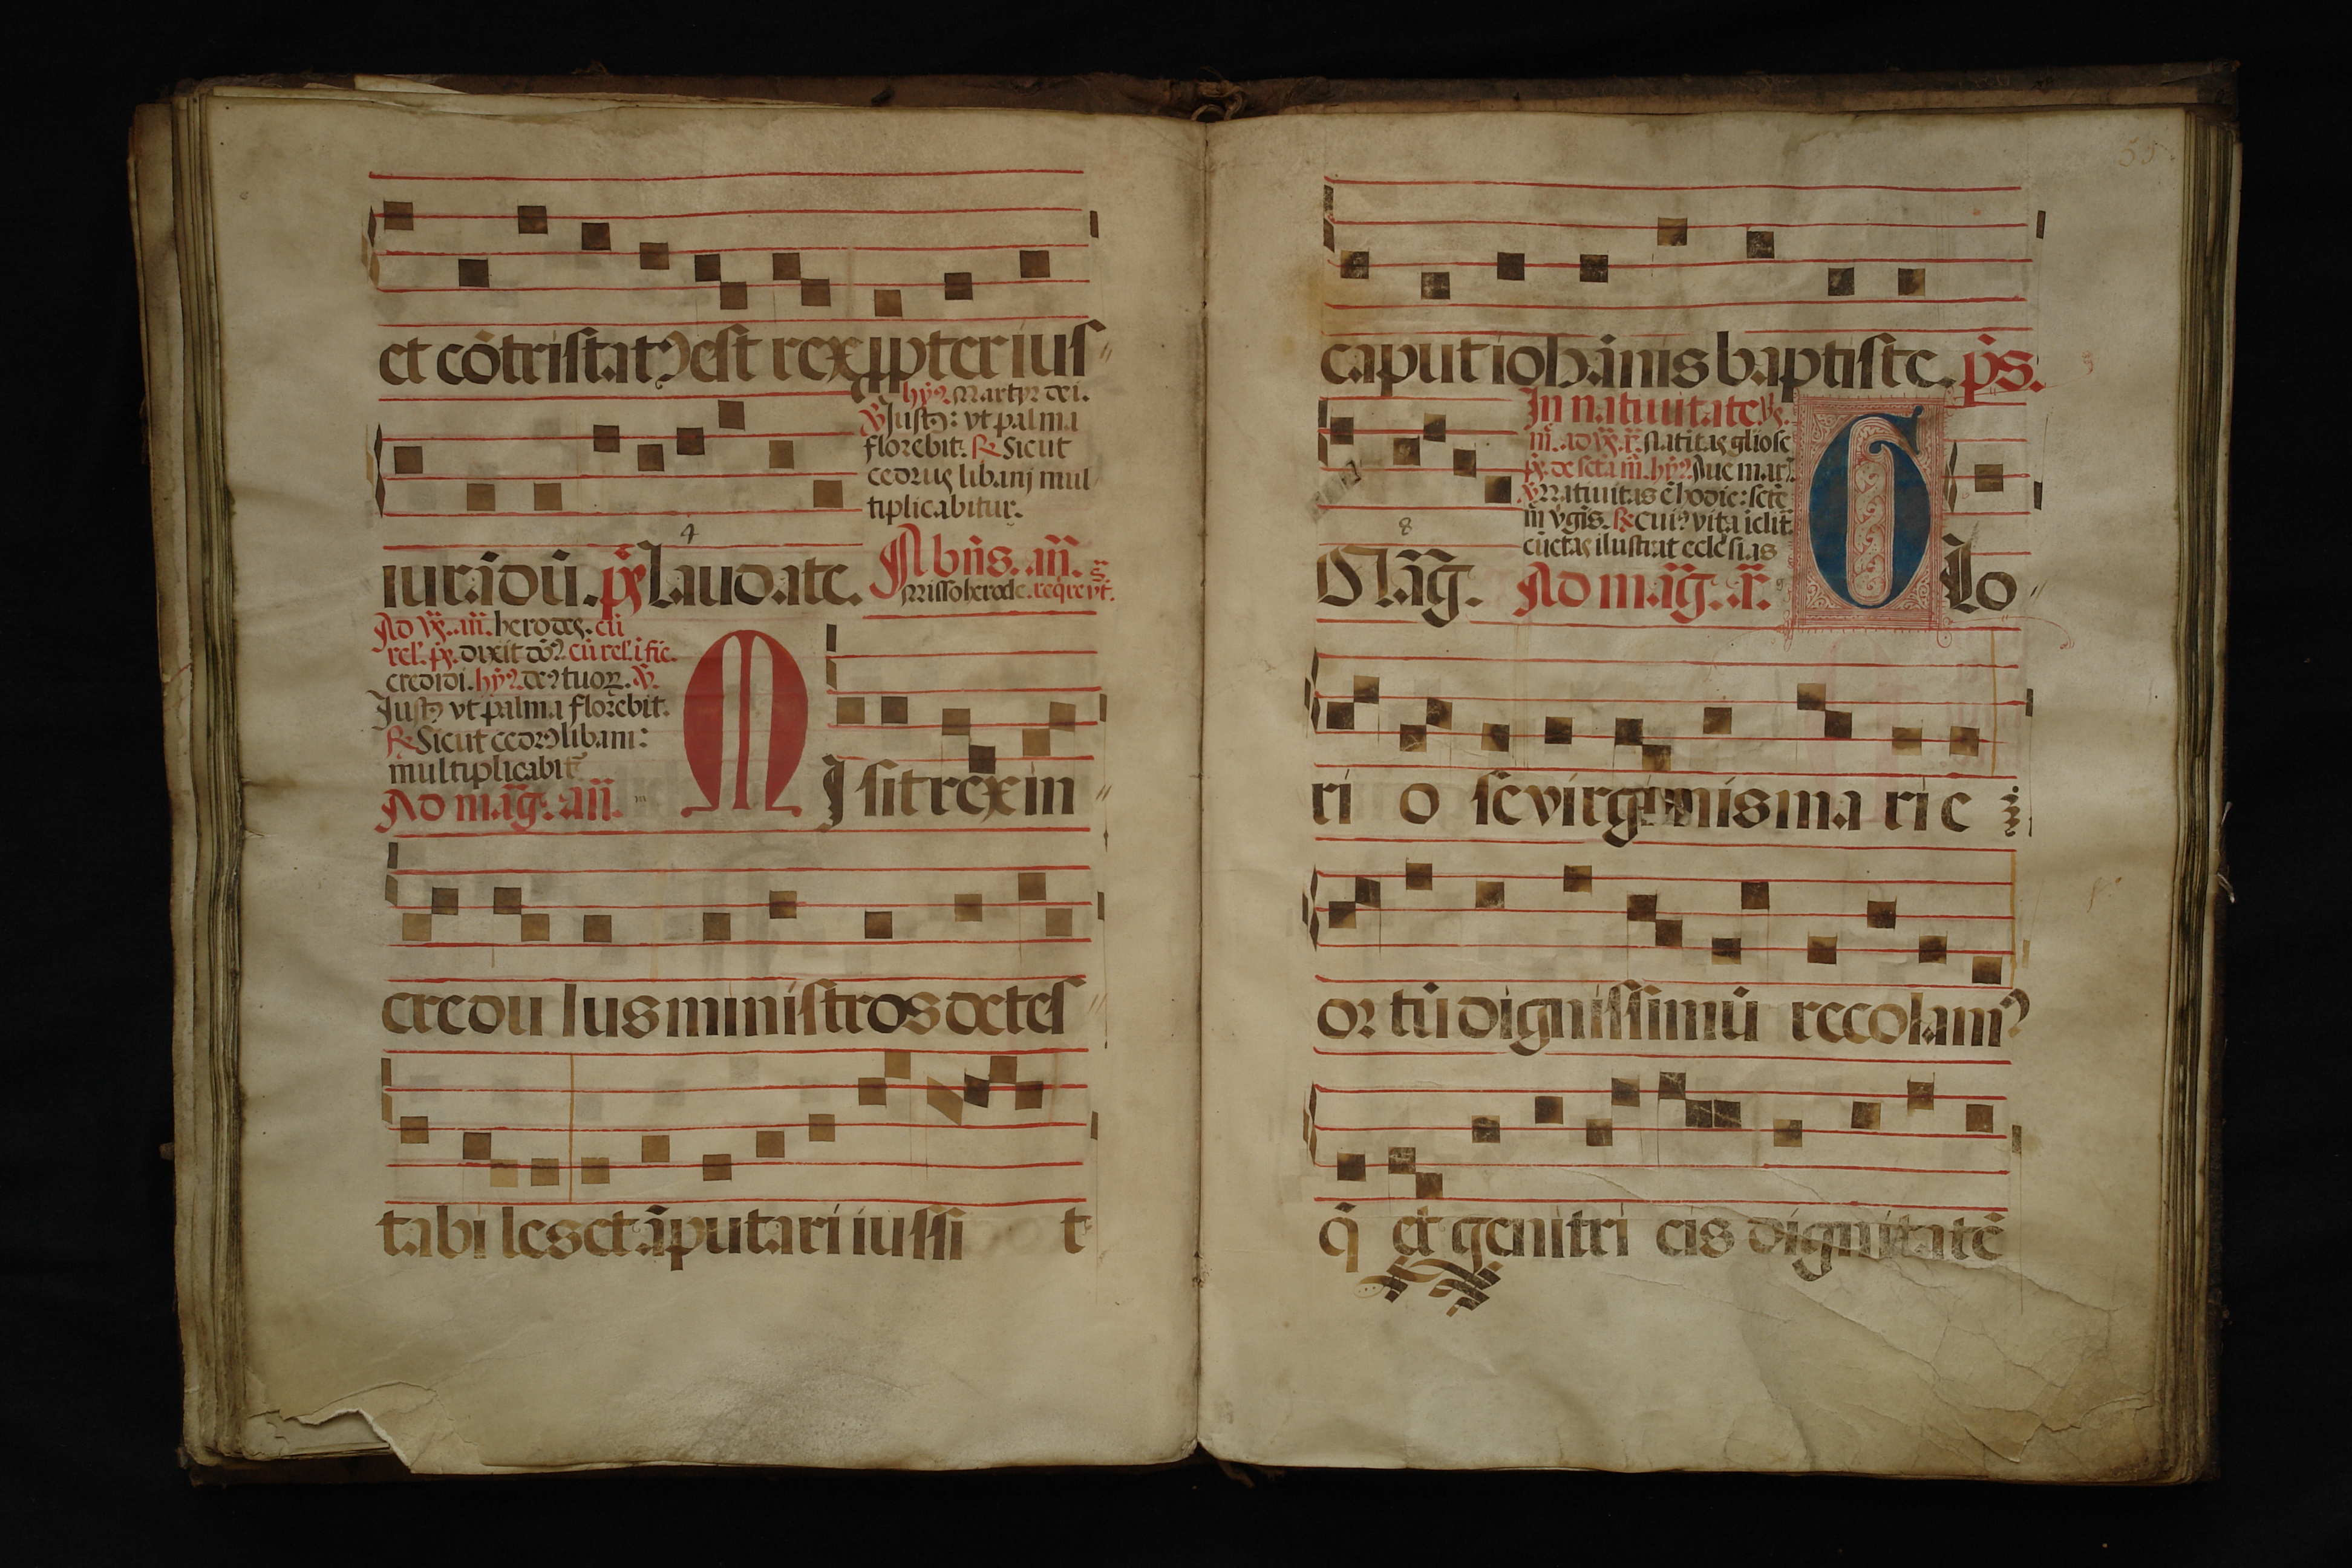 et cōtristatꝰ est rex ꝓpter ius
hȳꝰ. Martyr dei.
℣. Justꝰ: vt palma
florebit. ℟. Sicut
cedrus libani mul
tiplicabitur.
4
iurādū. p̄s Laudate. A bn̄s. an̄.
Misso herode. reqͥre vt. sͣ.
Ad vs̄. an̄. herodes. cū
rel'. ps̄. dixit dōꝰ. cū rel'. i fi.
credidi. hȳꝰ. deꝰ tuoꝝ. ℣.
Justꝰ vt palma florebit.
℟. Sicut cedrꝰ libani:
multiplicabit̄
Ad māg. an̄.
M Isit rex in
credulus ministros detes
tabiles et āputari iussi t
55.
caput iohānis baptiste. p̄s.
In natiuitate vḡ.
m̄. ad vs̄. an̄. Natitas gliose
ps̄. de scta m̄. hȳꝰ. Aue mar̄.
℣. Natiuitas ē hodie: scte
m̄ vḡis. ℟. Cuiꝰ vita īclit
cūctas ilustrat ecclesias
8
Māg. Ad māg. an̄. G Lo
ri o se virginis marie
ortū dignissimū recolamꝰ
q̄ et genitricis dignitatē